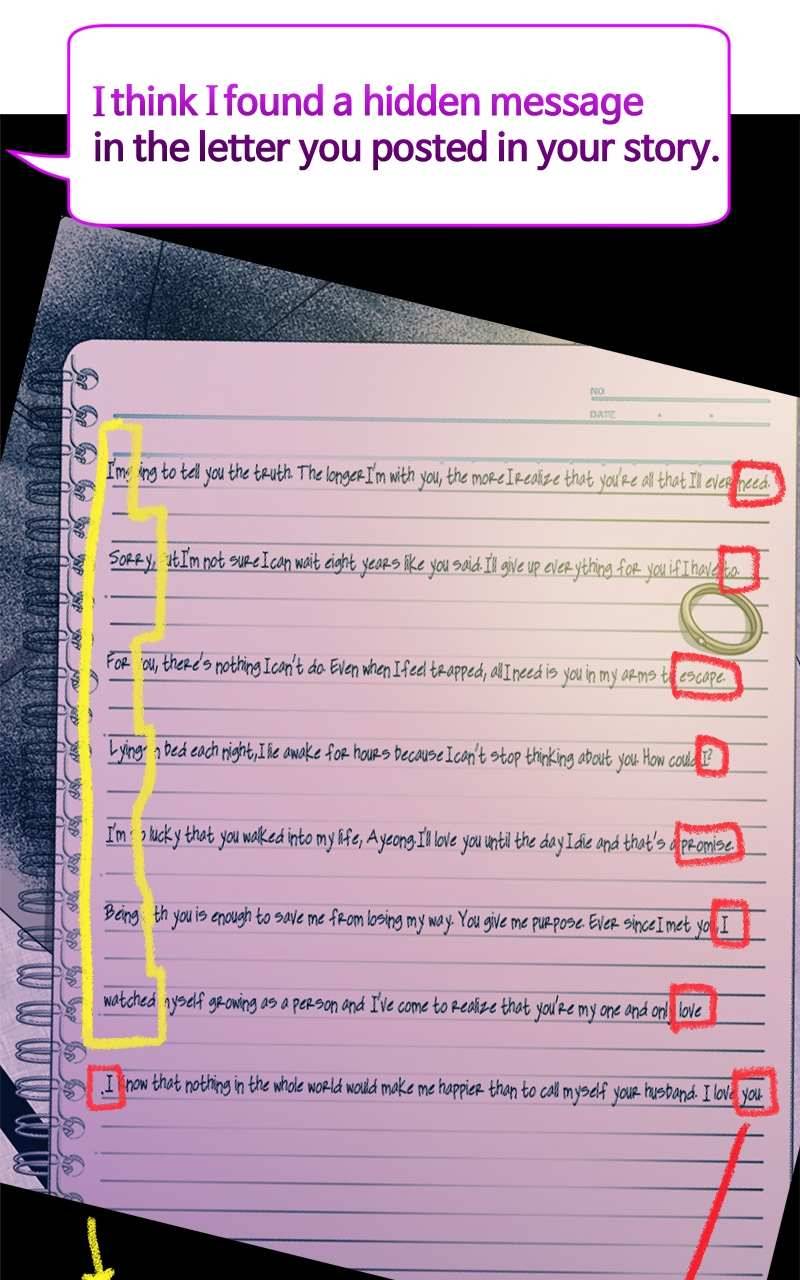 I think I found a hidden message
in the letter you posted in your story.
NO
DATE
I'm going to tell you the truth. The longer I'm with you, the more I realize that you're all that I'll ever need.
Sorry, but I'm not sure I can wait eight years like you said. I'll give up everything for you if I have to.
For you, there's nothing I can't do. Even when I feel trapped, all I need is you in my arms to escape.
Lying in bed each night, I lie awake for hours because I can't stop thinking about you. How could I?
I'm so lucky that you walked into my life, Ayeong. I'll love you until the day I die and that's a promise.
Being with you is enough to save me from losing my way. You give me purpose. Ever since I met you, I
watched myself growing as a person and I've come to realize that you're my one and only love
. I know that nothing in the whole world would make me happier than to call myself your husband. I love you.